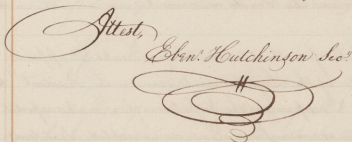 Attest,
Eben.^r Hutchinson Sec.^y